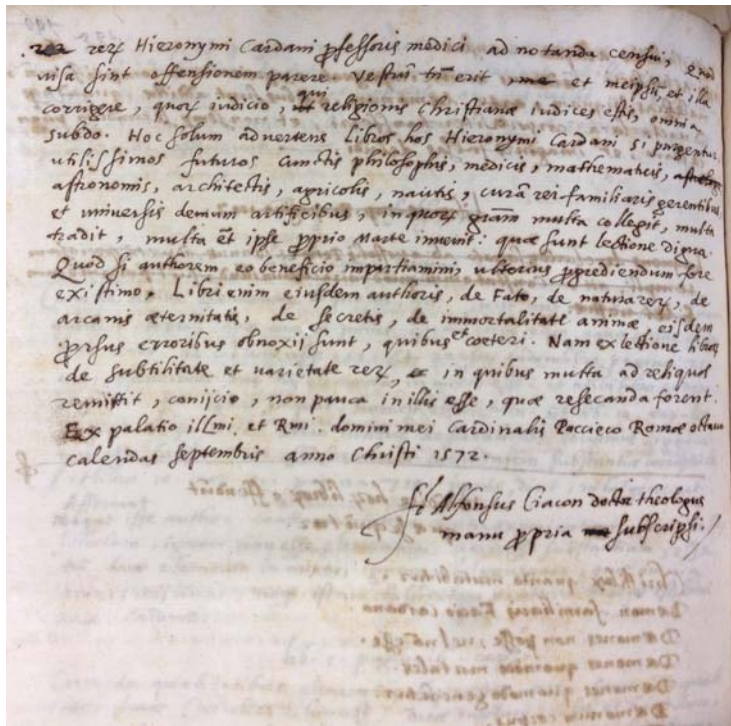 rerꝝ Hieronymi Cardani ꝓfessoris medici adnotanda censui, Quae
uisa sint offensionem parere Vestrũ tñ erit et meipsũ et illa
corrigere, quorꝝ iudicio, qui religionis Christianæ iudices estis, omnia
subdo. Hoc solum aduertens Libros hos Hieronymi Cardani si purgentur,
utilissimos futuros cunctis philosophis, medicis, mathematicis,
astronomis, architectis, agricolis, nautis, curã rei familiaris gerentibus
et uniuersis demum artificibus, in quorꝝ gratiã multa collegit, multa
tradit, multa et̃ ipse ꝓprio Marte inuenit: quæ sunt lectione digna.
Quod si authorem eo beneficio impartiamini, ulterius ꝓgrediendum fore
existimo. Libri enim eiusdem authoris, de Fato, de natura rerꝝ, de
arcanis æternitatis, de secretis, de immortalitate animæ, eisdem
ꝓrsus erroribus obnoxij sunt, quibus et coeteri. Nam ex lectione librorꝝ
de subtilitate et uarietate rerꝝ, in quibus multa ad reliquos
remittit, conijcio, non pauca in illis esse, quæ resecanda forent.
Ex palatio illmi. et Rmi. domini mei Cardinalis Paccieco Romæ octauo
calendas septembris anno Christi 1572.
fr. Alfonsus Ciacon doctor theologus
manu ꝓpria subscripsi.